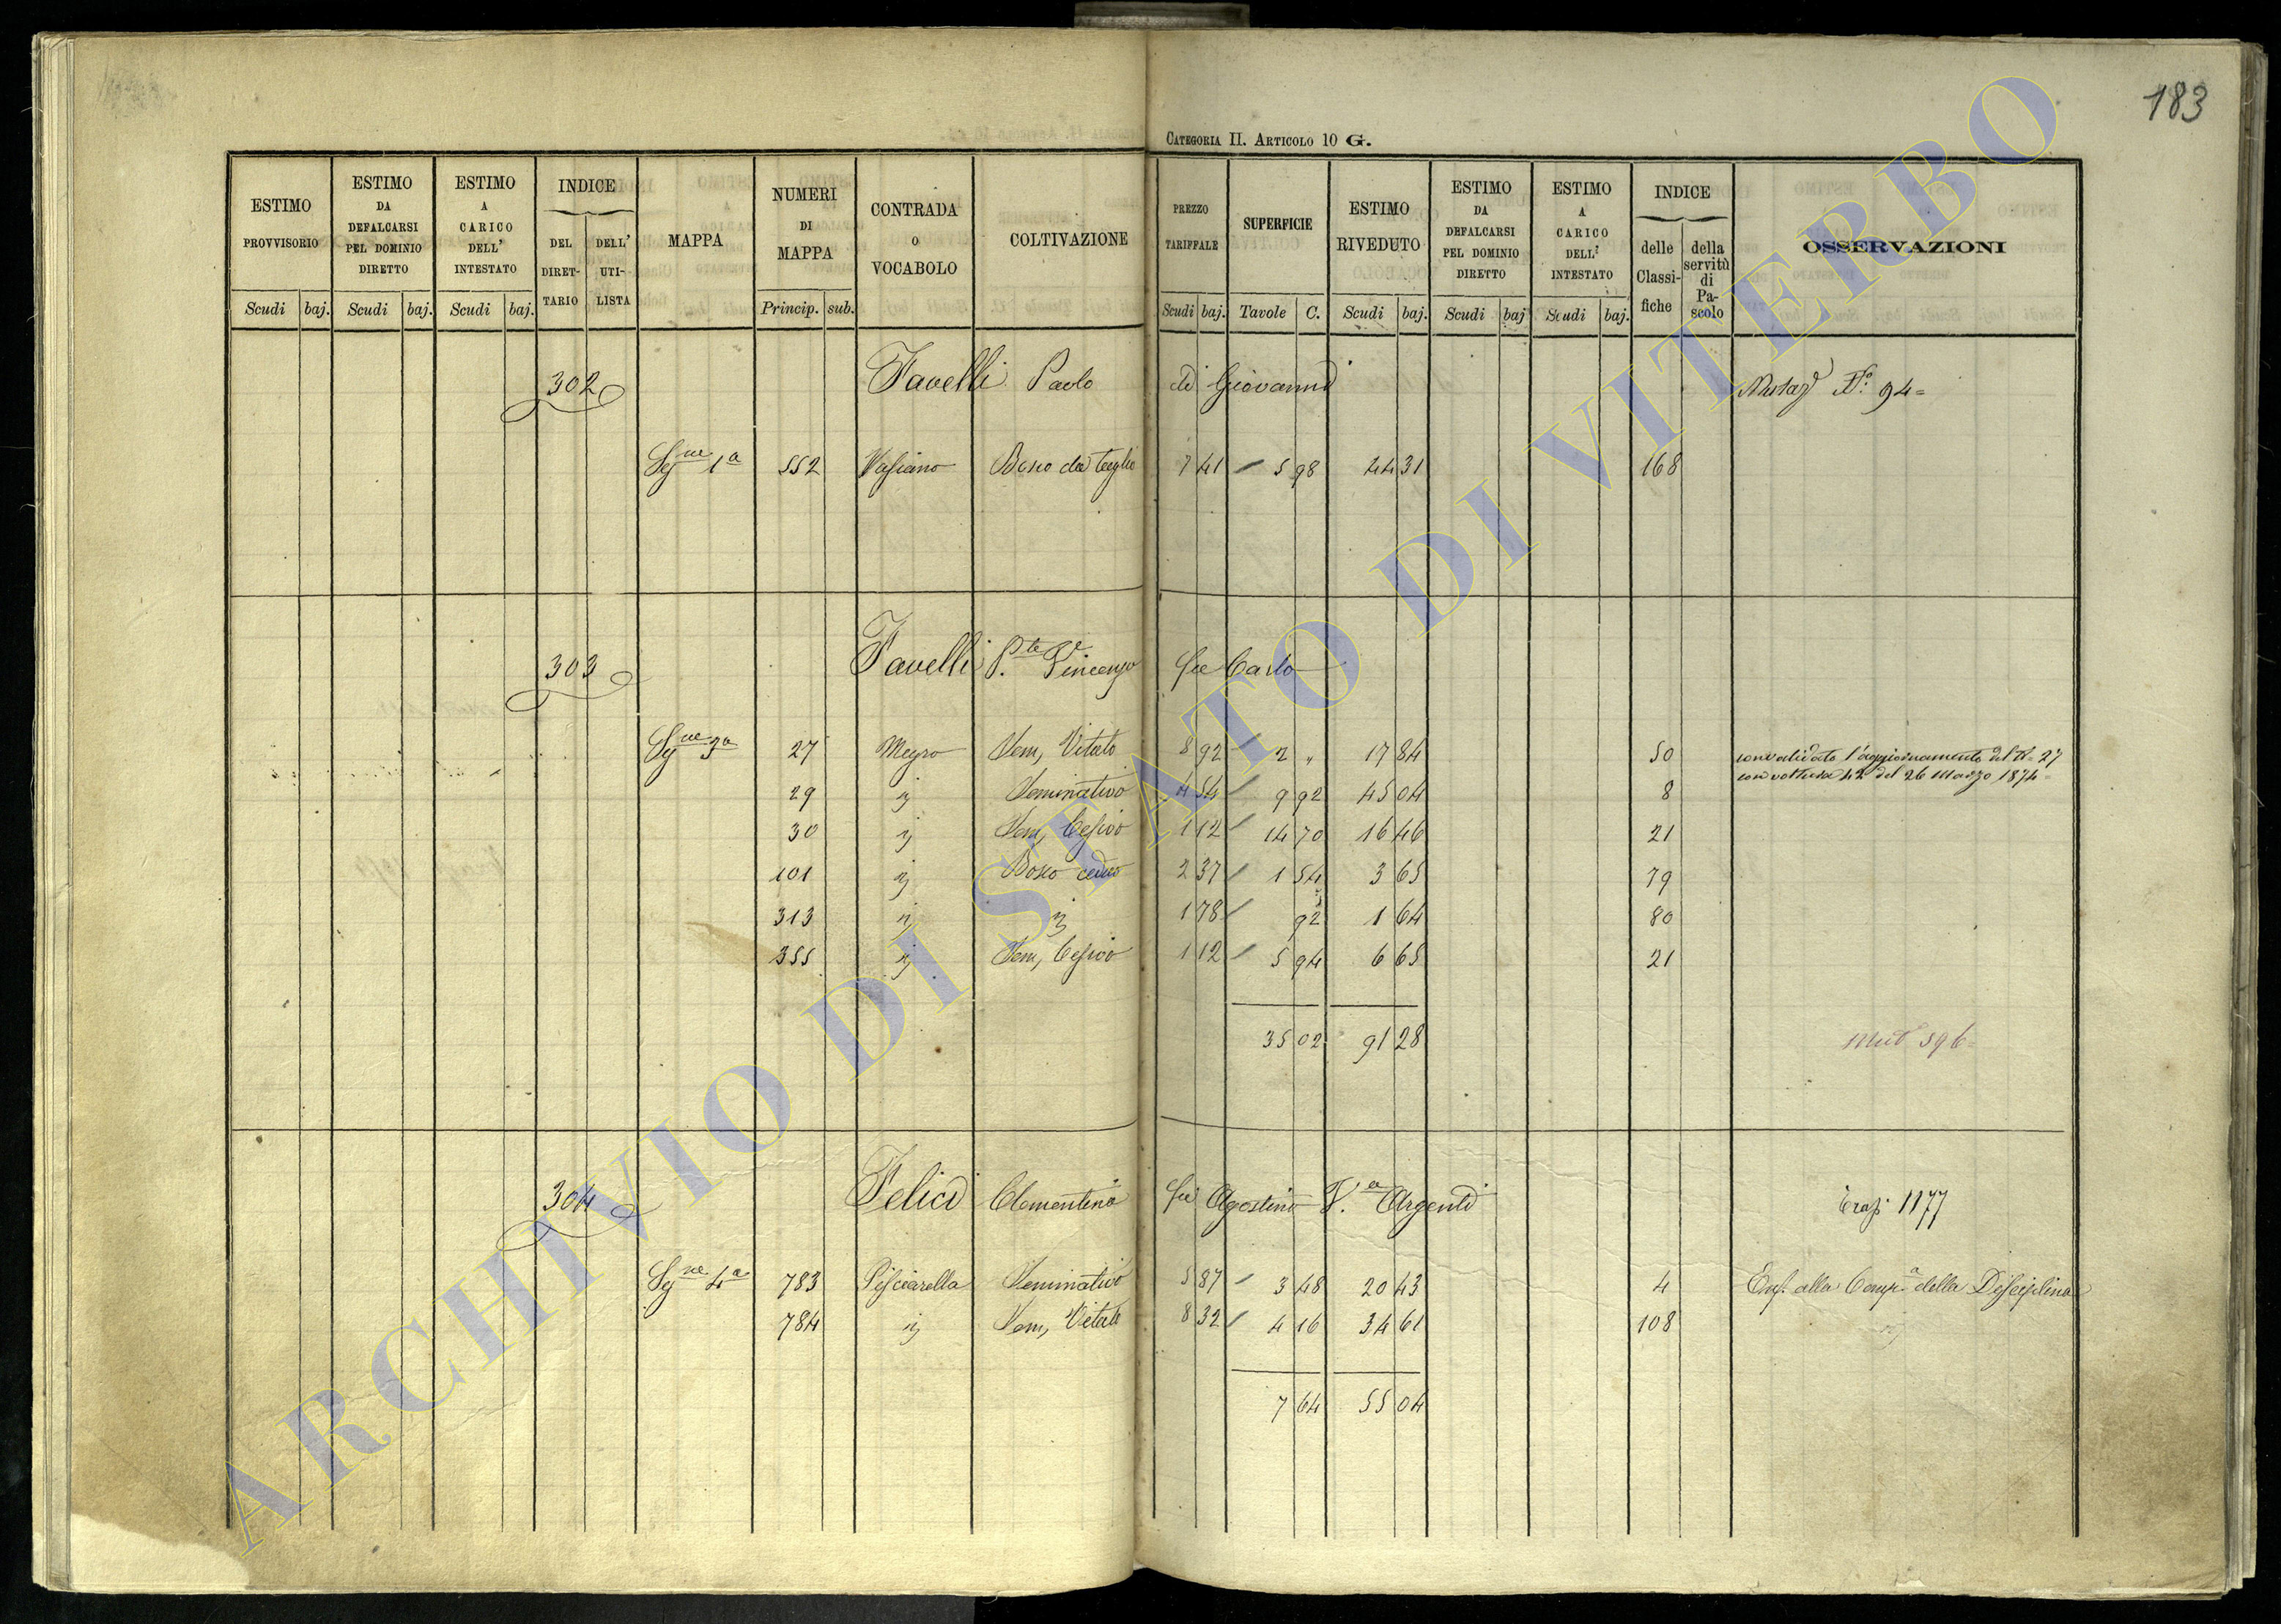 183
CATEGORIA II. ARTICOLO 10 G.
ESTIMO PROVVISORIO Scudi baj.
ESTIMO DA DEFALCARSI PEL DOMINIO DIRETTO Scudi baj.
ESTIMO A CARICO DELL' INTESTATO Scudi baj.
INDICE DEL DIRET-TARIO DELL' UTI-LISTA
MAPPA
NUMERI DI MAPPA Princip. sub.
CONTRADA O VOCABOLO
COLTIVAZIONE
PREZZO TARIFFALE Scudi baj.
SUPERFICIE Tavole C.
ESTIMO RIVEDUTO Scudi baj.
ESTIMO DA DEFALCARSI PEL DOMINIO DIRETTO Scudi baj
ESTIMO A CARICO DELL' INTESTATO Scudi baj.
INDICE delle Classi-fiche della servitù di Pa-scolo
OSSERVAZIONI
302 Favelli Paolo di Giovanni N.o 94=
Sgne 1a 552 Vasiano Bosco da Taglio 7 41 5 98 44 31 168
303 Favelli P.te Vincenzo fu Carlo
Sgne 3a 27 Megro Sem, Vitato 8 92 2 " 17 84 50 convalidato l'aggiornamento del N. 27
con voltura 42 del 26 Marzo 1874=
29 " Seminativo 4 54 9 92 45 04 8
30 " Sem, Cesivo 1 12 14 70 16 46 21
101 " Bosco ceduo 2 37 1 54 3 65 79
313 " " 1 78 92 1 64 80
355 " Sem, Cesivo 1 12 5 94 6 65 21
35 02 91 28
Mut 596=
304 Felici Clementina fu Agostino V.a Argenti Trasp. 1177
Sgne 4a 783 Pisciarella Seminativo 5 87 3 48 20 43 4 Enf. alla Comp.a della Disciplina
784 " Sem, Vitato 8 32 4 16 34 61 108 "
7 64 55 04
ARCHIVIO DI STATO DI VITERBO